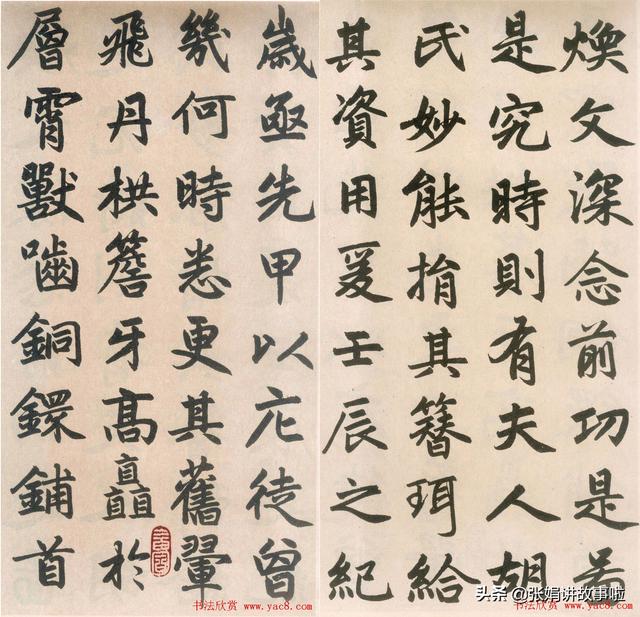 煥文深念前功是啚
是究時則有夫人胡
氏妙能捐其簪珥給
其資用爰壬辰之紀
歲亟先甲以庀徒曾
幾何時悉更其舊翬
飛丹栱簷牙高矗於
層霄獸嚙銅鐶鋪首
书法欣赏 www.yac8.com
书法欣赏 www.yac8.com
头条 @张娟讲故事啦